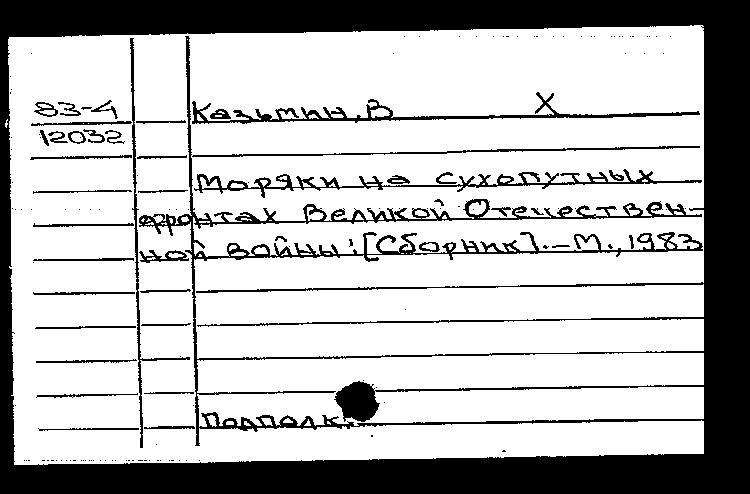 83-4 Казьмин, В X
12032
Моряки на сухопутных
фронтах Великой Отечествен-
ной войны: [Сборник]. - М., 1983
Подполк.